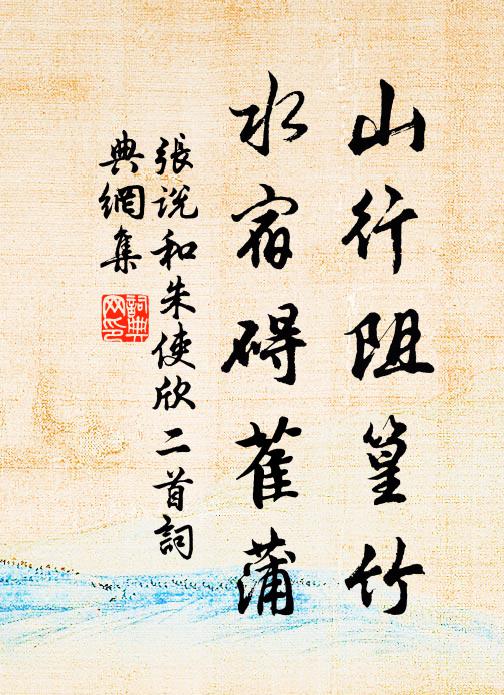 山行阻篁竹
水宿碍萑蒲
張說和朱使欣二首詞
典網集
詞典
网印